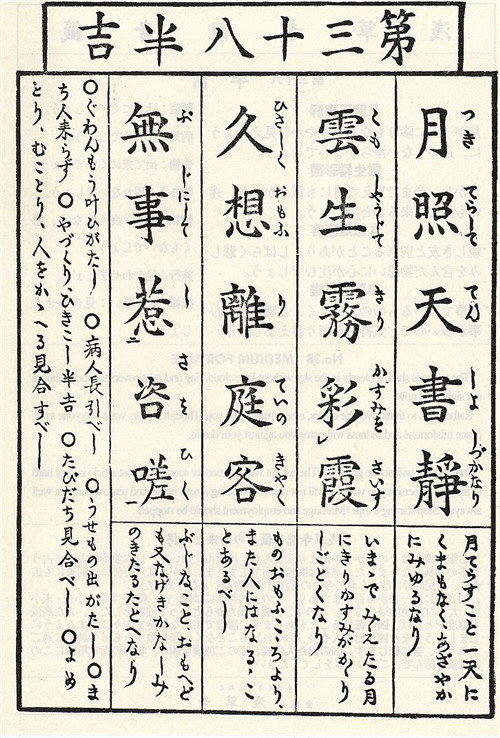 第三十八半吉
月照天書静
月てらすこと一天に
くまもなくあざやか
にみゆるなり
雲生霧彩霞
いまゝでみえたる月
にきりかすみがかゝり
しごとくなり
久想離庭客
ひさしく おもふ り ていの きやく
ものおもふころより
また人にはなるゝこ
とあるべし
無事惹咎嗟
ぶじなこと、おもへど
も又なげきかなしみ
のきたるたとへなり
〇ぐわんもう叶ひがたし 〇病人長引べし 〇うせもの出がたし 〇ま
ち人来らず 〇やづくりひきこし半吉 〇たびだち見合べし 〇よめ
とり、むことり、人をかゝへる見合すべし